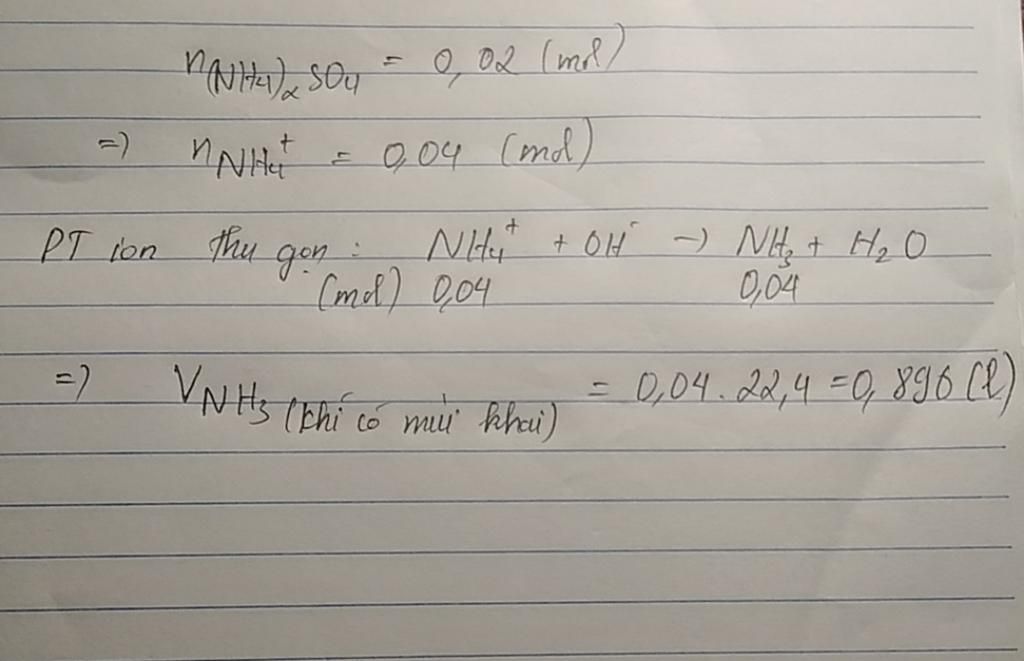 n(NH4)2SO4 = 0,02 (mol)
=) nNH4+ = 0,04 (mol)
PT ion thu gọn : NH4+ + OH- -) NH3 + H2O
(mol) 0,04 0,04
=) VNH3 (khí có mùi khai) = 0,04 . 22,4 = 0,896 (l)